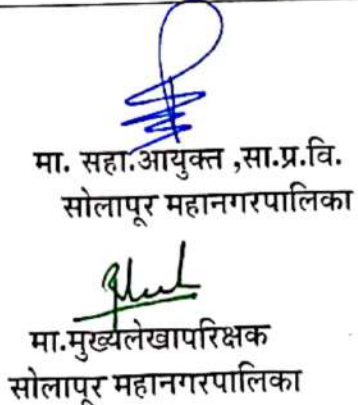 मा. सहा.आयुक्त ,सा.प्र.वि.
सोलापूर महानगरपालिका
मा.मुख्यलेखापरिक्षक
सोलापूर महानगरपालिका